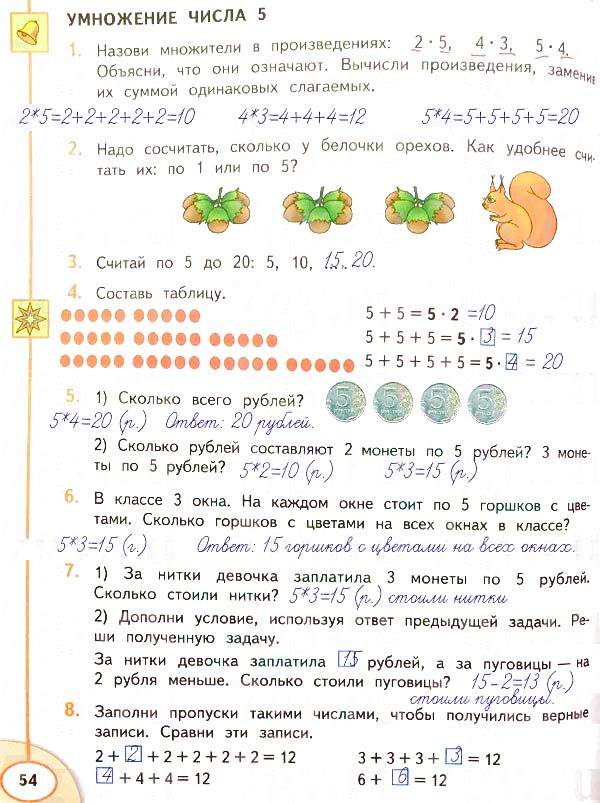 УМНОЖЕНИЕ ЧИСЛА 5
1. Назови множители в произведениях: 2 · 5, 4 · 3, 5 · 4.
Объясни, что они означают. Вычисли произведения, заменив
их суммой одинаковых слагаемых.
2*5=2+2+2+2+2=10 4*3=4+4+4=12 5*4=5+5+5+5=20
2. Надо сосчитать, сколько у белочки орехов. Как удобнее счи-
тать их: по 1 или по 5?
3. Считай по 5 до 20: 5, 10, 15, 20.
4. Составь таблицу.
5 + 5 = 5 · 2 =10
5 + 5 + 5 = 5 · 3 = 15
5 + 5 + 5 + 5 = 5 · 4 = 20
5. 1) Сколько всего рублей?
5 5 5 5
5*4=20 (р.) Ответ: 20 рублей.
2) Сколько рублей составляют 2 монеты по 5 рублей? 3 моне-
ты по 5 рублей? 5*2=10 (р.) 5*3=15 (р.)
6. В классе 3 окна. На каждом окне стоит по 5 горшков с цве-
тами. Сколько горшков с цветами на всех окнах в классе?
5*3=15 (г.) Ответ: 15 горшков с цветами на всех окнах.
7. 1) За нитки девочка заплатила 3 монеты по 5 рублей.
Сколько стоили нитки? 5*3=15 (р.) стоили нитки
2) Дополни условие, используя ответ предыдущей задачи. Ре-
ши полученную задачу.
За нитки девочка заплатила 15 рублей, а за пуговицы — на
2 рубля меньше. Сколько стоили пуговицы? 15-2=13 (р.)
стоили пуговицы.
8. Заполни пропуски такими числами, чтобы получились верные
записи. Сравни эти записи.
2 + 2 + 2 + 2 + 2 + 2 = 12 3 + 3 + 3 + 3 = 12
4 + 4 + 4 = 12 6 + 6 = 12
54